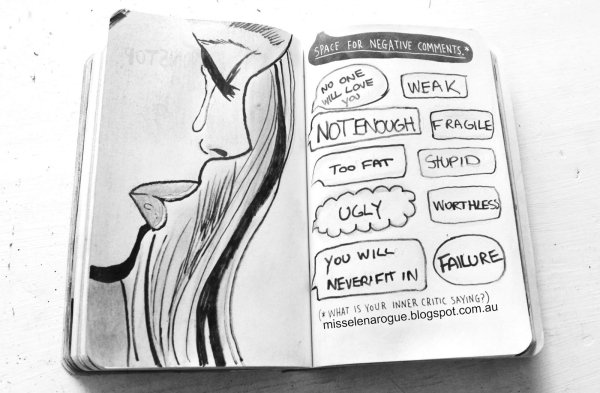 SPACE FOR NEGATIVE COMMENTS.*
NO ONE
WILL LOVE
YOU
WEAK
NOT ENOUGH
FRAGILE
TOO FAT
STUPID
UGLY
WORTHLESS
YOU WILL
NEVER FIT IN
FAILURE
(* WHAT IS YOUR INNER CRITIC SAYING?)
misselenarogue.blogspot.com.au